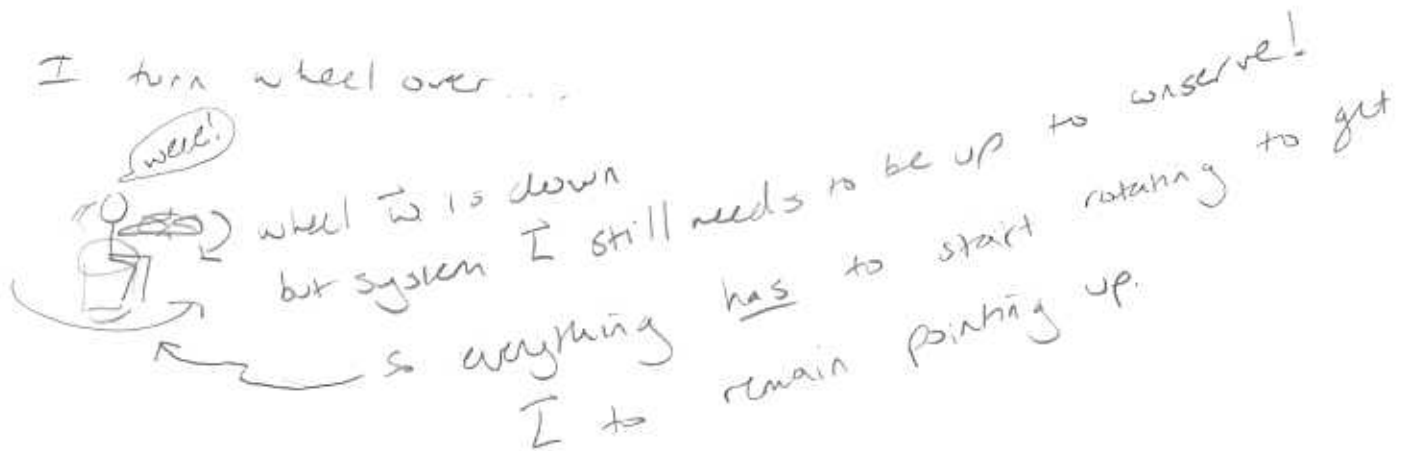 I turn wheel over...
weee!
wheel ω⃗ is down
but system L⃗ still needs to be up to conserve!
so everything has to start rotating to get
L⃗ to remain pointing up.